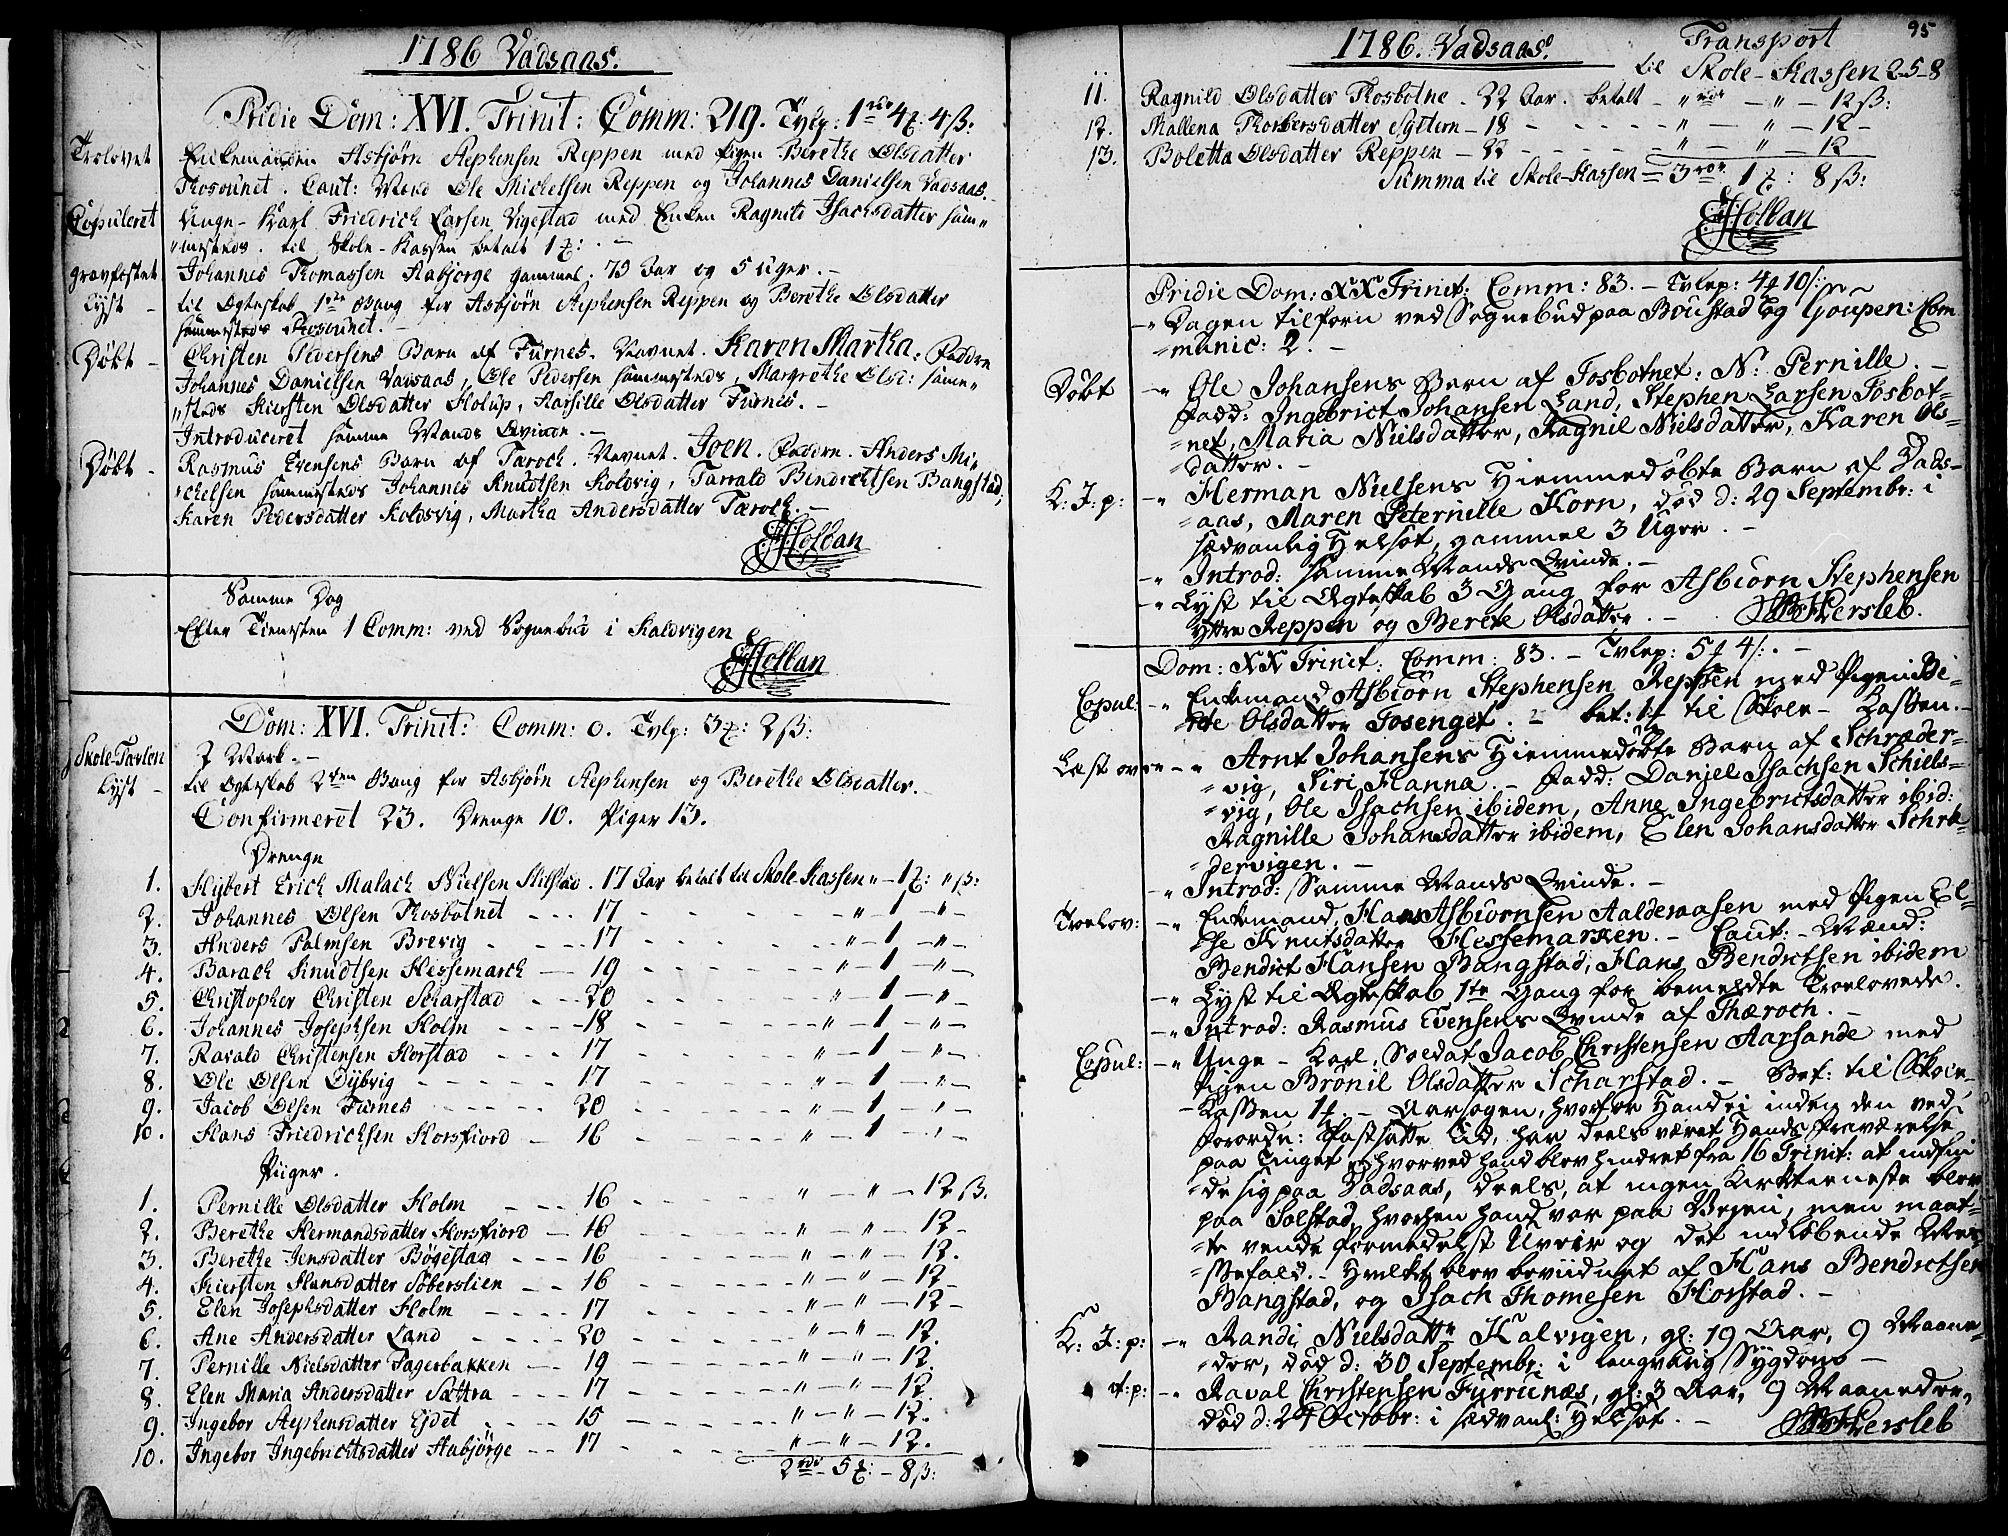 1786 Vadsaas.
Pridie Dom: XVI. Trinit: Comm: 219. Tvlp: 1 rdr 4 ß.
Troelovet Enkemanden Asbjørn Stephensen Reppen med Pigen Berethe Olsdatter
Caut: Mænd Ole Michelsen Reppen og Johannes Danielsen Vadsaas.
Copuleret Unge-Karl Friedrich Larsen Vigestad med Enken Ragnild Isachsdatter sam„
„mesteds. til Skole-Kassen betalt 1
gravfæstet Johannes Thomassen Aabjorge gammel. 75 Aar og 5 Uger.-
Lyst - til Egteskab 1ste Gang for Asbjørn Stephensen Reppen og Berethe Olsdatter
sammesteds
Døbt - Christen Pedersens Barn af Furnes. Navnet. Karen Martha. Faddre
Johannes Danielsen Vadsaas, Ole Pedersen sammesteds, Margrethe Olsd: same„
„steds Kiersten Olsdatter Holup, Olsdatter Furnes.-
Introduceret samme Mands Qvinde.-
Døbt - Rasmus Evensens Barn af Taroch. Navnet. Joen. Faddre. Anders Mi„
„chelsen sammesteds Johannes Knudtsen Koldvig, Tarrald Bendrichtsen Bangstad,
Karen Pedersdatter Koldsvig, Martha Andersdatter Tæroch.-
Hollan
Samme Dag
Efter Tienesten 1 Comm: ved Sognebud i Kaldvigen
Hollan
Dom: XVI. Trinit: Comm: 0. Tvlp: 3 : 2 ß:
Skole-Tavlen 7 Mark.-
Lyst - til Egteskab 2den Gang for Asbjørn Stephensen og Berethe Olsdatter.-
Confirmeret 23. Drenge 10. Piger 13.
Drenge
1. Hijbert Erich Malach Nielsen . 17 Aar betalt til Skole Kassen „ - 1 : „ ß:
2. Johannes Olsen Thosbotnet - - - 17 - - - „ - 1 - „ -
3. Anders Palmsen Brevig - - - 17 - - - „ - 1 - „ -
4. Barach Knudtsen Hessemarch - - 19 - - - „ - 1 - „ -
5. Christopher Christen Scharstad - - - 20 - - - „ - 1 - „ -
6. Johannes Josephsen Holm - - - 18 - - - „ - 1 - „ -
7. Ravald Christensen Horstad - - - 17 - - - „ - 1 - „ -
8. Ole Olsen Dijbvig - - - 17 - - - „ - 1 - „ -
9. Jacob Olsen Furnes - - - 20 - - - „ - 1 - „ -
10. Hans Friedrichsen Horsfiord - 16 - - - „ - 1 - „ -
Piiger.
1. Pernille Olsdatter Holm - - - 16 - - - „ - „ - 12 ß.
2. Berethe Hermandsdatter Horsfiord - 16 - - - „ - „ - 12 -
3. Berethe Jensdatter Bøgestad - - - 16 - - - „ - „ - 12.
4. Kiersten Hansdatter Søberslien - - 16 - - - „ - „ - 12 -
5. Elen Josephsdatter Holm - - - 17 - - - „ - „ - 12 -
6. Ane Andersdatter Land - - - 20 - - - „ - „ - 12.
7. Pernille Nielsdatter Fagerbakken - - 19 - - - „ - „ - 12.
8. Elen Maria Andersdatter Sættra - - - 17 - - - „ - „ - 12.
9. Ingebor Stephensdatter Ejdet - - - 15 - - - „ - „ - 12.
10. Ingebor Ingebrichtsdatter Aabjørge - - 17 - - - „ - „ - 12.
2 rdr - 5 : - 8 ß:
95
1786. Vadsaas. Transport
til Skole-Kassen 2-5-8
11. Ragnild Olsdatter Thosbotne - 22 Aar. betalt - „ rdr - „ - 12 ß:
12. Mallena Thorbersdatter Sÿltern - 18 - - - „ - „ - 12 -
13. Boletta Olsdatter Reppen - 22 - - - „ - „ - 12
Summa til Skole-Kassen = 3 rdr 1 : 8 ß:
Hollan
Pridie Dom: XX Trinit: Comm: 83. - Tvlep: 4 10 /:
-„ Dagen tilforn ved Sognebud paa Boustad og Goupen: Com
„munic: 2.-
Døbt -„ Ole Johansens Barn af Fosbotnet: N: Pernille.-
Fadd: Ingebrict Johansen Land, Stephen Larsen Fosbot„
„net, Maria Nielsdatter, Ragnil Nielsdatter, Karen Ols„
„datter.-
K: J: p: -„ Herman Nielsens Hiemmedøbte Barn af Vads„
„aas, Maren Peternille Korn, død d: 29 Septembr: i
sædvanlig Helsot, gammel 3 Uger.-
-„ Introd: samme Mands Qvinde.-
-„ Lyst til Egteskab 3 Gang for Asbiorn Stephensen
Yttre Reppen og Berete Olsdatter.- Hersleb.
Dom: XX Trinit: Comm: 83.- Tvlep: 5 4 /:.-
Copul: -„ Enkemand Asbiorn Stephensen Reppen med Pigen Be„
rete Olsdatter Fosenget.- bet: 1 til Skole-Kassen.-
Læst over -„ Arnt Johansens Hiemmedøbte Barn af Schrøder„
„vig, Siri Hanna.- Fadd: Danjel Isachsen Schiels„
„vig, Ole Isachsen ibidem, Anne Ingebrictsdatter ibid:
Ragnille Johansdatter ibidem, Elen Johansdatter Schrø„
„dervigen.-
-„ Introd: Samme Mands Qvinde.-
Troelov: -„ Enkemand, Hans Asbiornsen Aalderaasen med Pigen El„
se Knutsdatter Hessemarken.- Caut:- Mænd:
Bendict Hansen Bangstad, Hans Bendictsen ibidem
-„ Lyst til Egteskab 1te Gang for bemeldte Troelovede.
-„ Introd: Rasmus Evensens Qvinde af Thæroch.-
Copul: -„ Unge-Karl, Soldat Jacob Christensen Aarsande med
Pigen Brønil Olsdatter Scharstad.- Bet: til Skole-
-Kassen 1 .- Aarsagen, hvorfor Hand ei inden den ved
Forordn: Fastsatte Tid, har deels været Hands Fraværelse
paa Tinget hvorved hand blev hindret fra 16 Trinit: at indfin
„de sig paa Vadsaas, deels, at ingen Kirketieneste blev
paa Solstad, hvorhen hand var paa Vejen, men maat„
„te vende formedelst Uveir og det indløbende
Hvilket blev beviidnet af Hans Bendictsen
Bangstad, og Isach Thomesen Horstad.-
K: J: p: -„ Randi Nielsdattr Kalvigen, gl: 19 Aar, 9 Maane„
„der, død d: 30 Septembr: i langvarig Sygdom -
-„ Raval Christensen Furrunæs, gl: 3 Aar, 9 Maaneder,
død d: 24 Octobr: i sædvanl: Helsot.- Hersleb